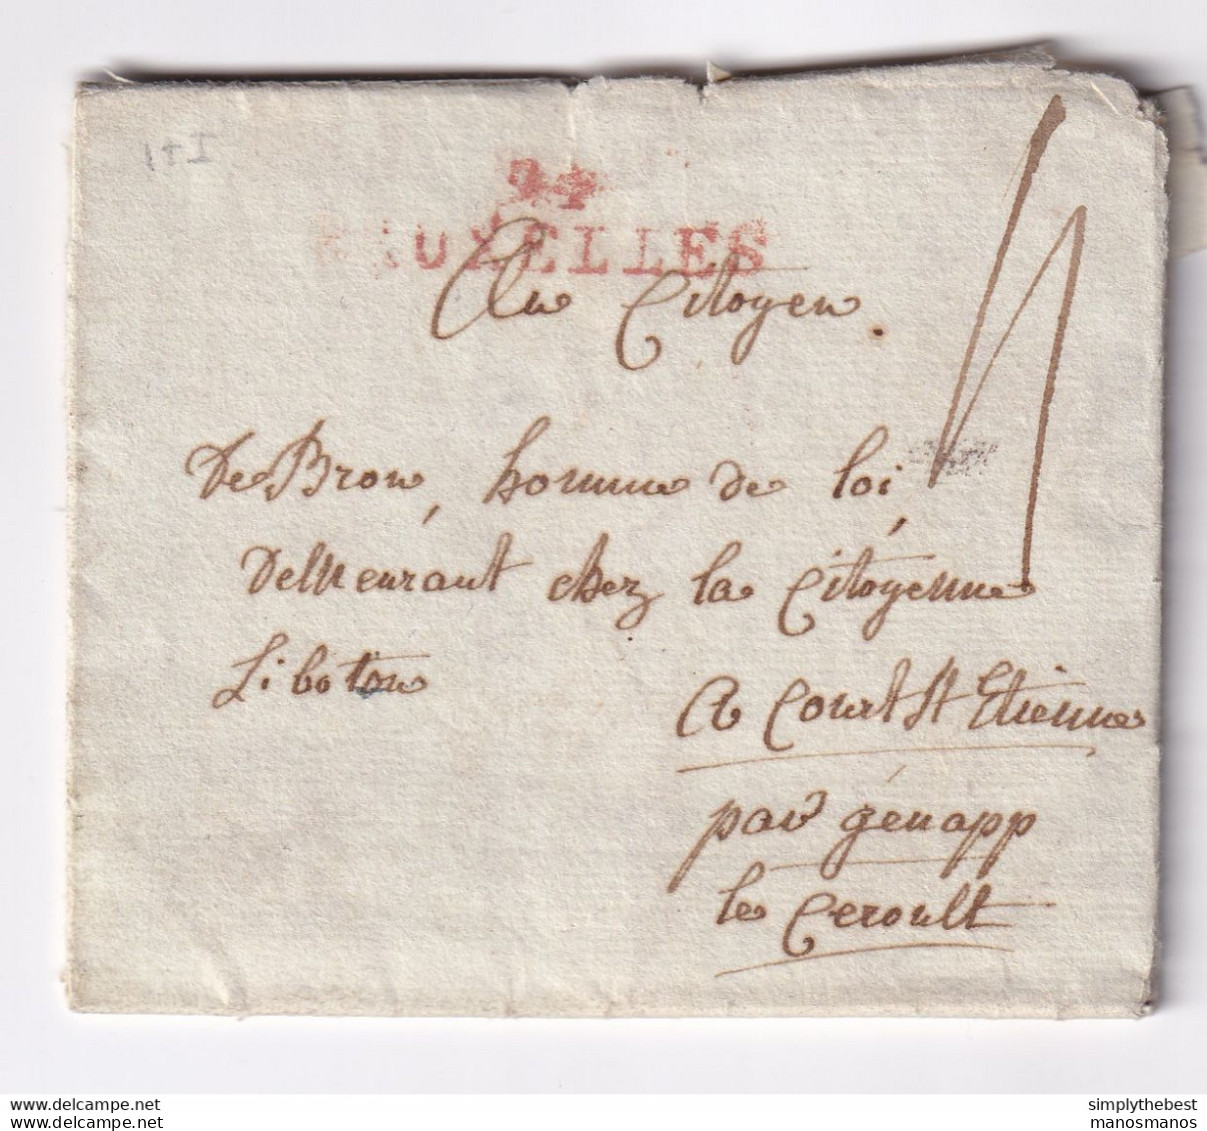 94
BRUXELLES
Au Citoyen
De Bron, homme de loi
Demeurant chez la Citoyenne
Liboton
A Court St Etienne
par génapp
le Ceroult
simplythebest
manosmanos